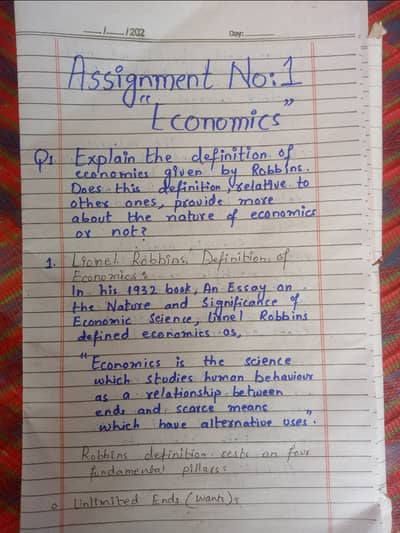 ___/___/202 Day:______
Assignment No:1
"Economics"
Q1 Explain the definition of
economics given by Robbins.
Does this definition, relative to
other ones, provide more
about the nature of economics
or not?
1. Lionel Robbins' Definition of
Economics:
In his 1932 book, An Essay on
the Nature and Significance of
Economic Science, Lionel Robbins
defined economics as,
"Economics is the science
which studies human behaviour
as a relationship between
ends and scarce means
which have alternative uses."
Robbins definition rests on four
fundamental pillars:
o Unlimited Ends (Wants):